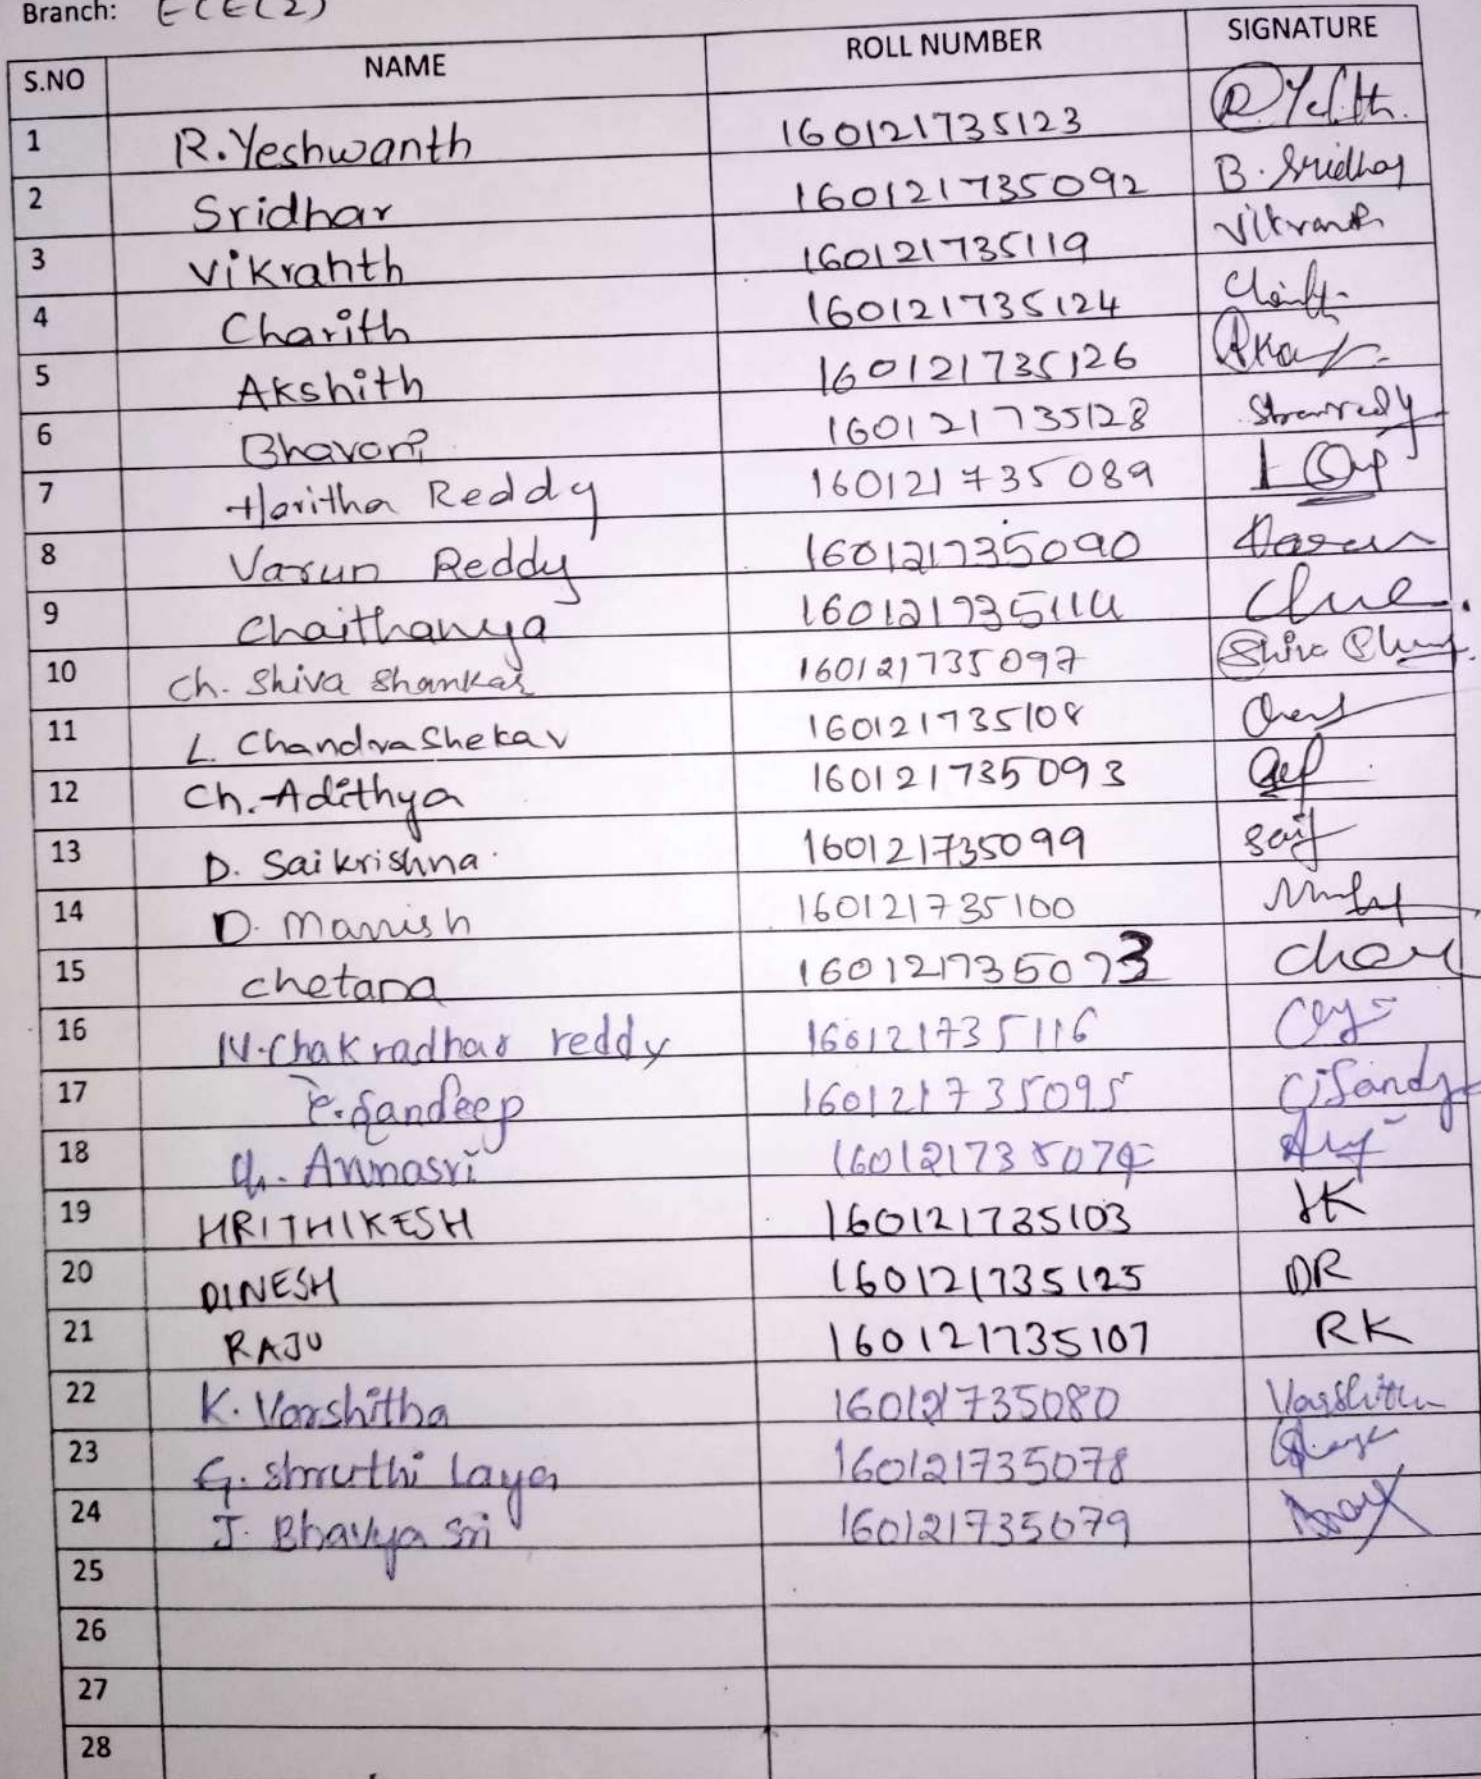 Branch: ECE(2)
S.NO NAME ROLL NUMBER SIGNATURE
1 R.Yeshwanth 160121735123
2 Sridhar 160121735092 B. Sridhar
3 Vikranth 160121735119 Vikranth
4 Charith 160121735124
5 Akshith 160121735126
6 Bhavani 160121735128
7 Haritha Reddy 160121735089
8 Varun Reddy 160121735090 Varun
9 Chaithanya 160121735114
10 Ch. Shiva Shankar 160121735097 Shiva
11 L. Chandra Shekar 160121735108
12 Ch. Adithya 160121735093
13 D. Saikrishna 160121735099 Sai
14 D. Manish 160121735100
15 chetana 160121735073
16 N.Chakradhar reddy 160121735116
17 E.Sandeep 160121735095
18 Ch. Annasri 160121735074
19 HRITHIKESH 160121735103 HK
20 DINESH 160121735125 DR
21 RAJU 160121735107 RK
22 K. Varshitha 160121735080 Varshitha
23 G. Shruthi Laya 160121735078
24 J. Bhavya Sri 160121735079
25
26
27
28